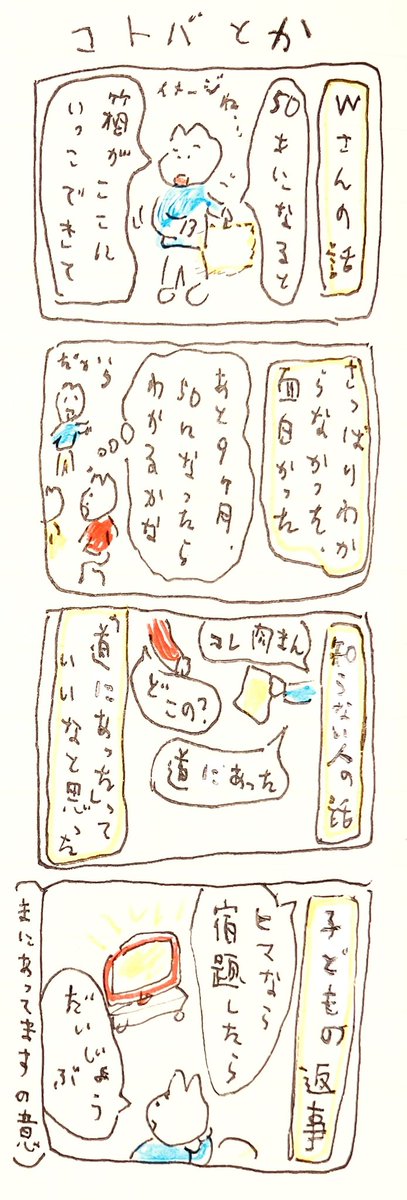 コトバとか
Wさんの話
50さいになると
イメージね…
箱がここに
いっこできて
さっぱりわか
らなかったが、
面白かった
あと9ケ月、
50になったら
わかるかな
だから
知らない人の話
コレ肉まん
どこの?
道にあった
「道にあった」って
いいなと思った
子どもの返事
ヒマなら
宿題したら
だいじょう
ぶ
(まにあってますの意)